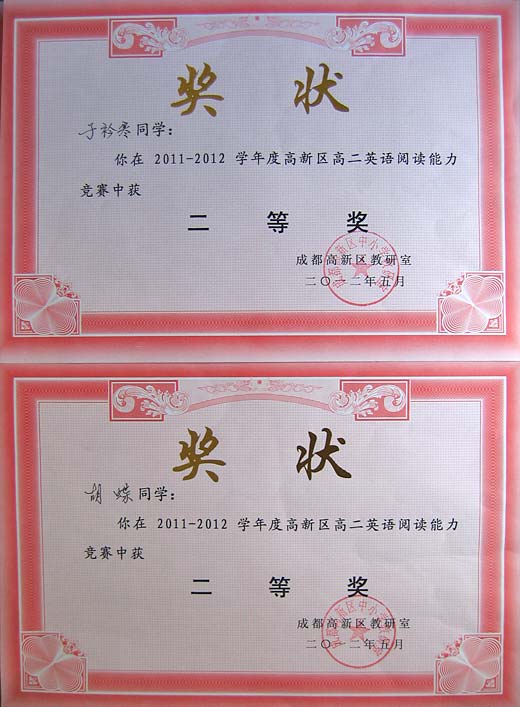 奖 状
于衿冬同学：
你在 2011-2012 学年度高新区高二英语阅读能力
竞赛中获
二 等 奖
成都高新区教研室
二〇一二年五月
奖 状
胡蝶同学：
你在 2011-2012 学年度高新区高二英语阅读能力
竞赛中获
二 等 奖
成都高新区教研室
二〇一二年五月